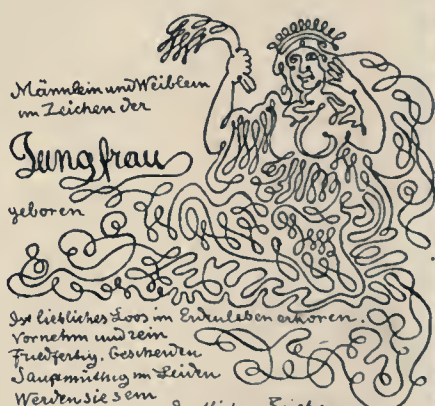 Männlein und Weiblein
im Zeichen der
Jungfrau
geboren
Ist liebliches Loos im Erdenleben erkoren.
Vornehm und rein
Friedfertig, Bescheiden
Sanftmüthig im Leiden
Werden sie sein